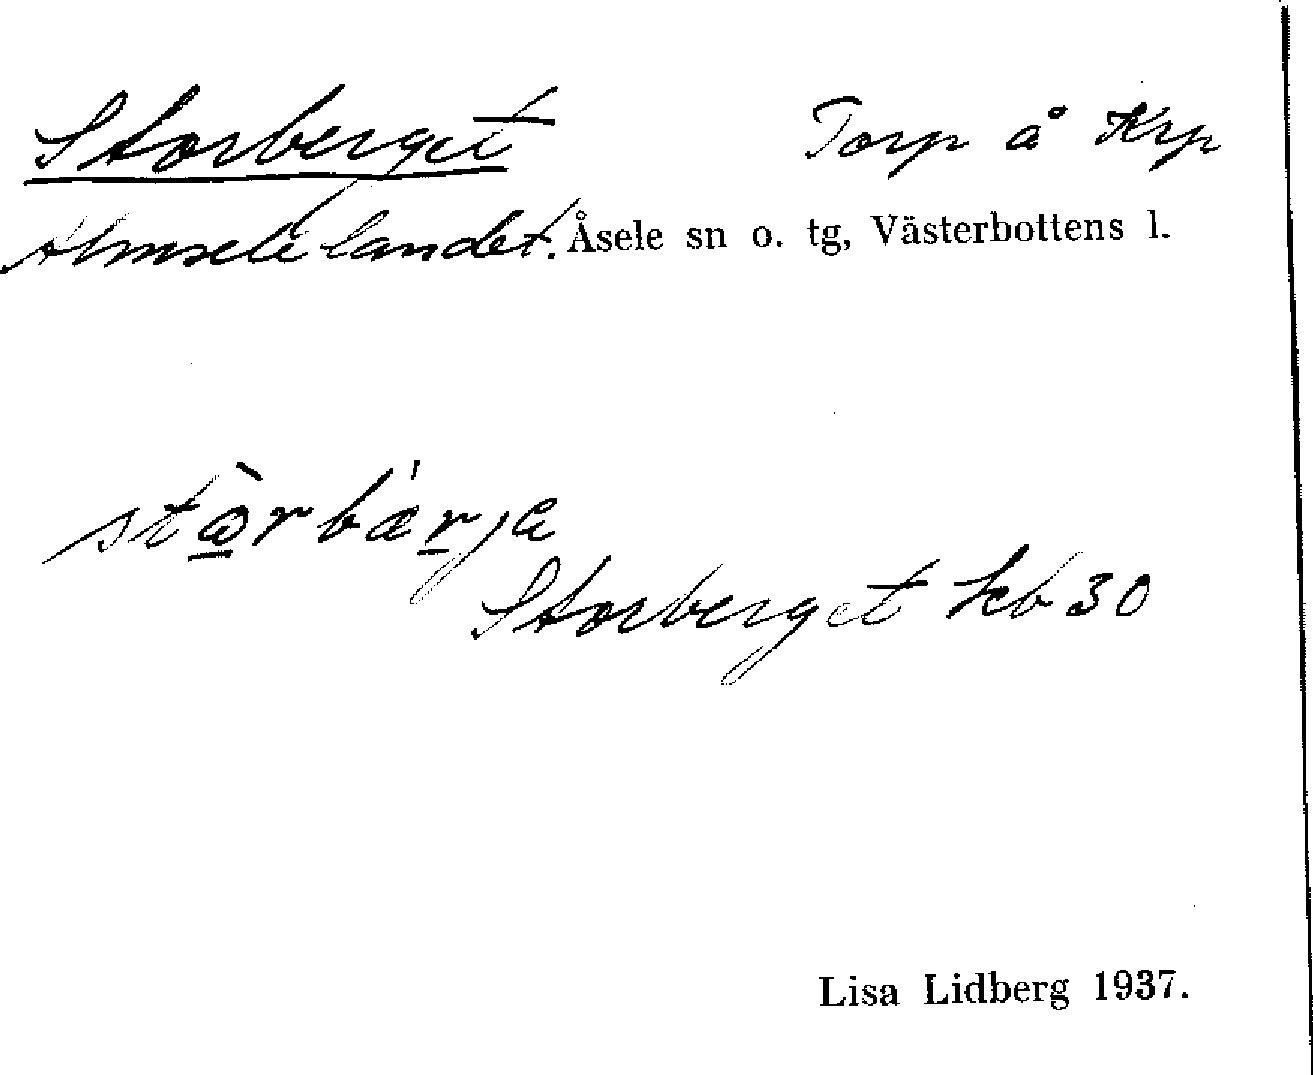 Storberget Torp å Krp
Almselelandet. Åsele sn o. tg, Västerbottens l.
stòrbǽrja
Storberget kb 30
Lisa Lidberg 1937.